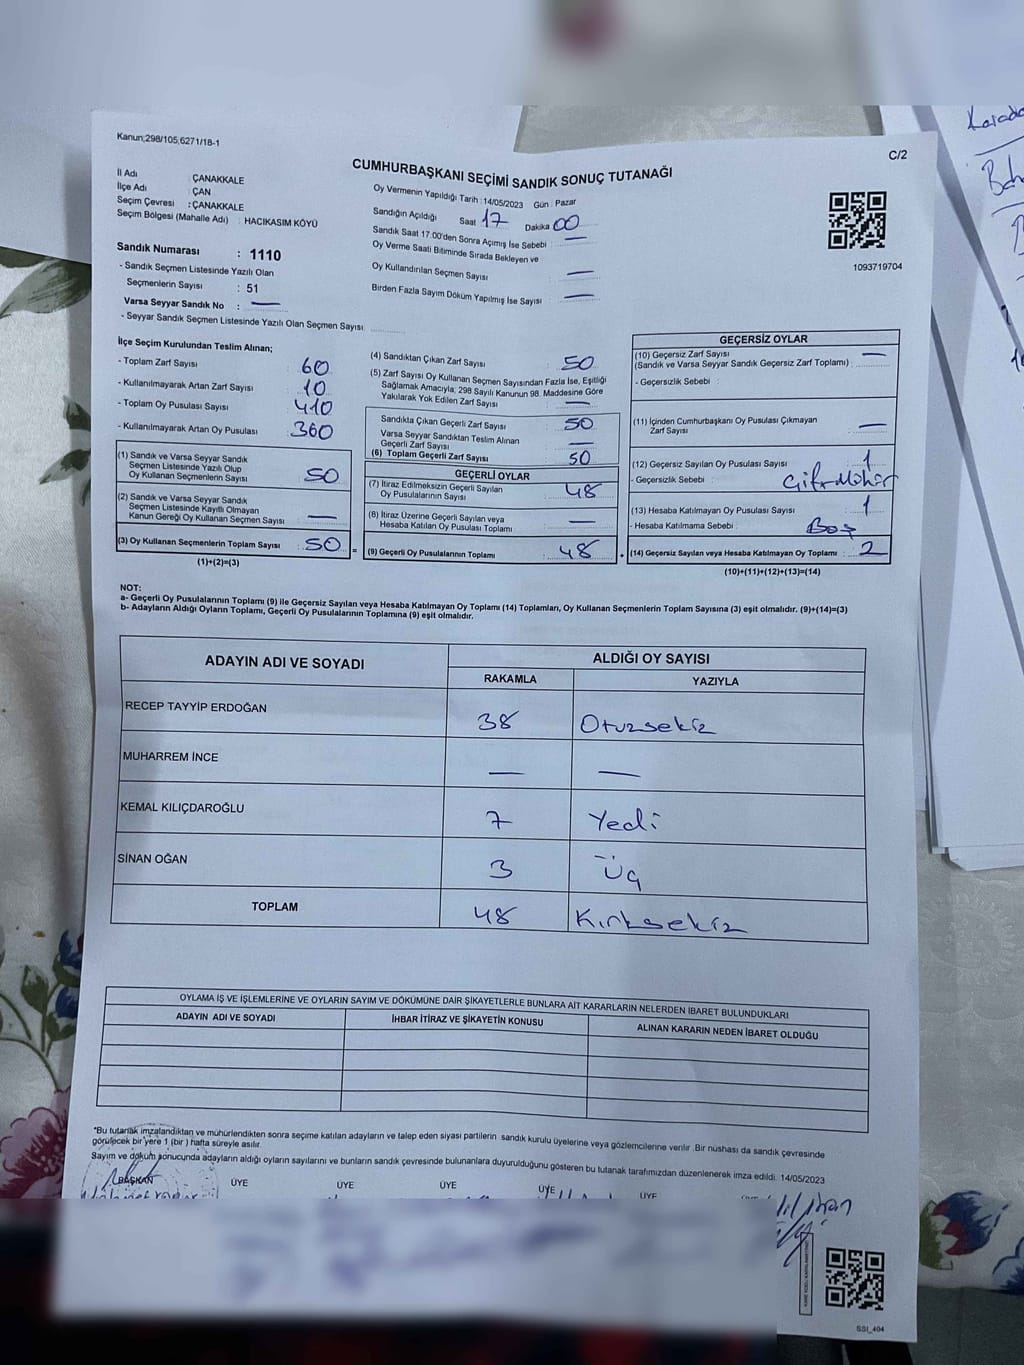 Kanun;298/105;6271/18-1
C/2
CUMHURBAŞKANI SEÇİMİ SANDIK SONUÇ TUTANAĞI
İl Adı : ÇANAKKALE
İlçe Adı : ÇAN
Seçim Çevresi : ÇANAKKALE
Seçim Bölgesi (Mahalle Adı) : HACIKASIM KÖYÜ
Sandık Numarası : 1110
- Sandık Seçmen Listesinde Yazılı Olan
Seçmenlerin Sayısı : 51
Varsa Seyyar Sandık No : —
- Seyyar Sandık Seçmen Listesinde Yazılı Olan Seçmen Sayısı
Oy Vermenin Yapıldığı Tarih : 14/05/2023 Gün : Pazar
Sandığın Açıldığı Saat 17 Dakika 00
Sandık Saat 17:00'den Sonra Açımış İse Sebebi : —
Oy Verme Saati Bitiminde Sırada Bekleyen ve
Oy Kullandırılan Seçmen Sayısı —
Birden Fazla Sayım Döküm Yapılmış İse Sayısı —
1093719704
İlçe Seçim Kurulundan Teslim Alınan;
- Toplam Zarf Sayısı 60
- Kullanılmayarak Artan Zarf Sayısı 10
- Toplam Oy Pusulası Sayısı 410
- Kullanılmayarak Artan Oy Pusulası 360
(1) Sandık ve Varsa Seyyar Sandık
Seçmen Listesinde Yazılı Olup
Oy Kullanan Seçmenlerin Sayısı 50
(2) Sandık ve Varsa Seyyar Sandık
Seçmen Listesinde Kayıtlı Olmayan
Kanun Gereği Oy Kullanan Seçmen Sayısı —
(3) Oy Kullanan Seçmenlerin Toplam Sayısı 50
(1)+(2)=(3)
(4) Sandıktan Çıkan Zarf Sayısı 50
(5) Zarf Sayısı Oy Kullanan Seçmen Sayısından Fazla İse, Eşitliği
Sağlamak Amacıyla; 298 Sayılı Kanunun 98. Maddesine Göre
Yakılarak Yok Edilen Zarf Sayısı —
Sandıkta Çıkan Geçerli Zarf Sayısı 50
Varsa Seyyar Sandıktan Teslim Alınan
Geçerli Zarf Sayısı —
(6) Toplam Geçerli Zarf Sayısı 50
GEÇERLİ OYLAR
(7) İtiraz Edilmeksizin Geçerli Sayılan
Oy Pusulalarının Sayısı 48
(8) İtiraz Üzerine Geçerli Sayılan veya
Hesaba Katılan Oy Pusulası Toplamı —
= (9) Geçerli Oy Pusulalarının Toplamı 48 +
GEÇERSİZ OYLAR
(10) Geçersiz Zarf Sayısı
(Sandık ve Varsa Seyyar Sandık Geçersiz Zarf Toplamı) : —
- Geçersizlik Sebebi :
(11) İçinden Cumhurbaşkanı Oy Pusulası Çıkmayan
Zarf Sayısı —
(12) Geçersiz Sayılan Oy Pusulası Sayısı 1
- Geçersizlik Sebebi : Çift Mühür
(13) Hesaba Katılmayan Oy Pusulası Sayısı 1
- Hesaba Katılmama Sebebi : Boş
(14) Geçersiz Sayılan veya Hesaba Katılmayan Oy Toplamı : 2
(10)+(11)+(12)+(13)=(14)
NOT:
a- Geçerli Oy Pusulalarının Toplamı (9) ile Geçersiz Sayılan veya Hesaba Katılmayan Oy Toplamı (14) Toplamları, Oy Kullanan Seçmenlerin Toplam Sayısına (3) eşit olmalıdır. (9)+(14)=(3)
b- Adayların Aldığı Oyların Toplamı, Geçerli Oy Pusulalarının Toplamına (9) eşit olmalıdır.
ADAYIN ADI VE SOYADI
ALDIĞI OY SAYISI
RAKAMLA YAZIYLA
RECEP TAYYİP ERDOĞAN 38 Otuzsekiz
MUHARREM İNCE — —
KEMAL KILIÇDAROĞLU 7 Yedi
SİNAN OĞAN 3 Üç
TOPLAM 48 Kırksekiz
OYLAMA İŞ VE İŞLEMLERİNE VE OYLARIN SAYIM VE DÖKÜMÜNE DAİR ŞİKAYETLERLE BUNLARA AİT KARARLARIN NELERDEN İBARET BULUNDUKLARI
ADAYIN ADI VE SOYADI İHBAR İTİRAZ VE ŞİKAYETİN KONUSU ALINAN KARARIN NEDEN İBARET OLDUĞU
*Bu tutanak imzalandıktan ve mühürlendikten sonra seçime katılan adayların ve talep eden siyasi partilerin sandık kurulu üyelerine veya gözlemcilerine verilir .Bir nüshası da sandık çevresinde
görülecek bir yere 1 (bir ) hafta süreyle asılır.
Sayım ve döküm sonucunda adayların aldığı oyların sayılarını ve bunların sandık çevresinde bulunanlara duyurulduğunu gösteren bu tutanak tarafımızdan düzenlenerek imza edildi. 14/05/2023
BAŞKAN ÜYE ÜYE ÜYE ÜYE ÜYE
SSI_404